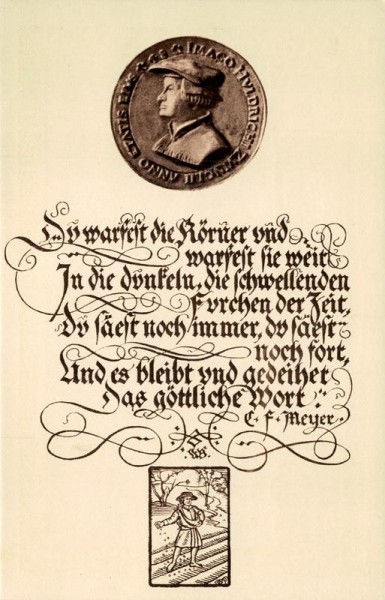 IMAGO HVLDRICHI ZVINGLII ANNO ETATIS EIVS 48
Dv warfest die Körner vnd
warfest sie weit
In die dvnkeln, die schwellenden
Fvrchen der Zeit,
Dv säest noch immer, dv säest
noch fort,
Und es bleibt vnd gedeihet
Das göttliche Wort
C. F. Meyer.